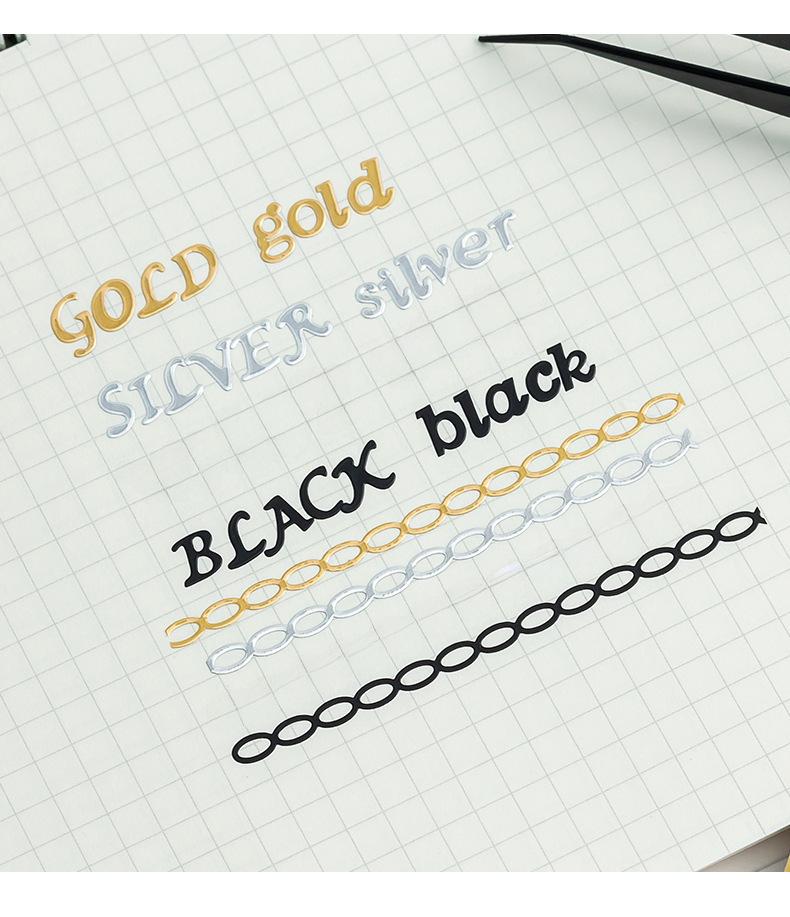 GOLD gold
SILVER silver
BLACK black